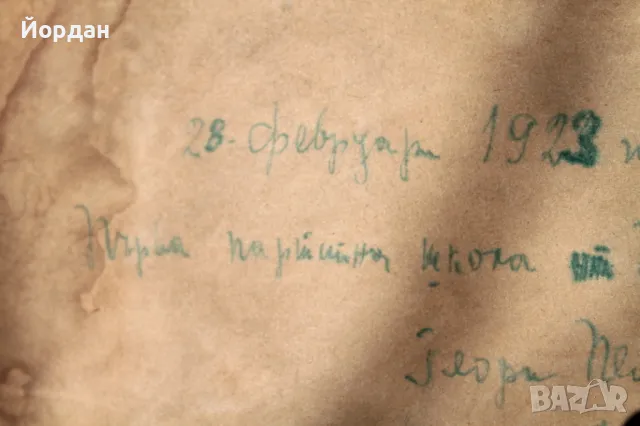 Йордан
28. февруари 1923 г
Първа партийна школа
Георги
BAZAR